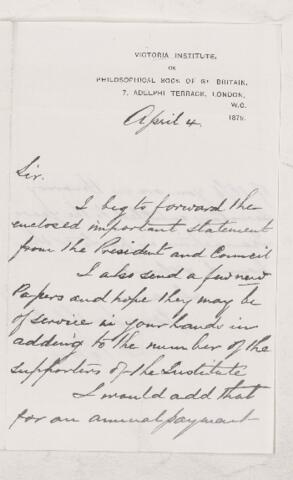 VICTORIA INSTITUTE,
OR
PHILOSOPHICAL SOCY OF GT BRITAIN,
7, ADELPHI TERRACE, LONDON,
W.C.
April 4. 187
Sir.
I beg to forward the
enclosed important statement
from the President and Council
I also send a few new
Papers and hope they may be
of service in your hands in
adding to the number of the
supporters of the Institute
I would add that
for an annual payment